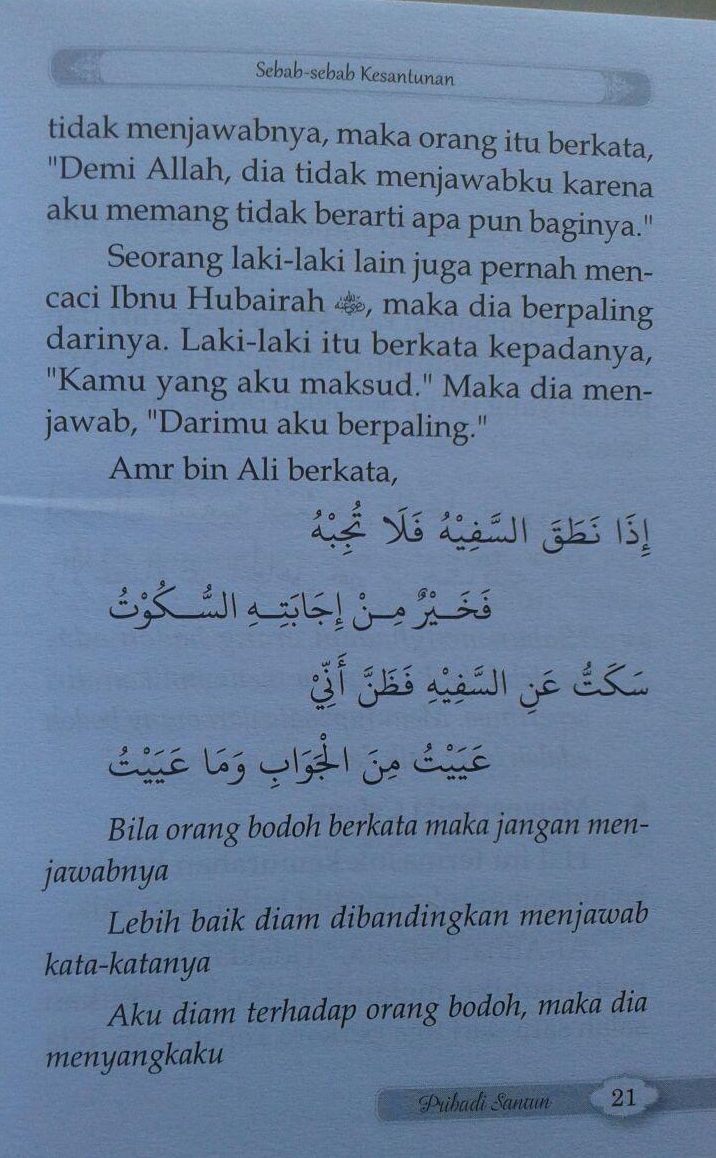 Sebab-sebab Kesantunan
tidak menjawabnya, maka orang itu berkata,
"Demi Allah, dia tidak menjawabku karena
aku memang tidak berarti apa pun baginya."
Seorang laki-laki lain juga pernah men-
caci Ibnu Hubairah , maka dia berpaling
darinya. Laki-laki itu berkata kepadanya,
"Kamu yang aku maksud." Maka dia men-
jawab, "Darimu aku berpaling."
Amr bin Ali berkata,
إِذَا نَطَقَ السَّفِيْهُ فَلَا تُجِبْهُ
فَخَـيْرٌ مِـنْ إِجَابَتِـهِ السُّـكُوْتُ
سَكَتُّ عَنِ السَّفِيْهِ فَظَنَّ أَنِّيْ
عَيَيْتُ مِنَ الْجَوَابِ وَمَا عَيَيْتُ
Bila orang bodoh berkata maka jangan men-
jawabnya
Lebih baik diam dibandingkan menjawab
kata-katanya
Aku diam terhadap orang bodoh, maka dia
menyangkaku
Pribadi Santun 21